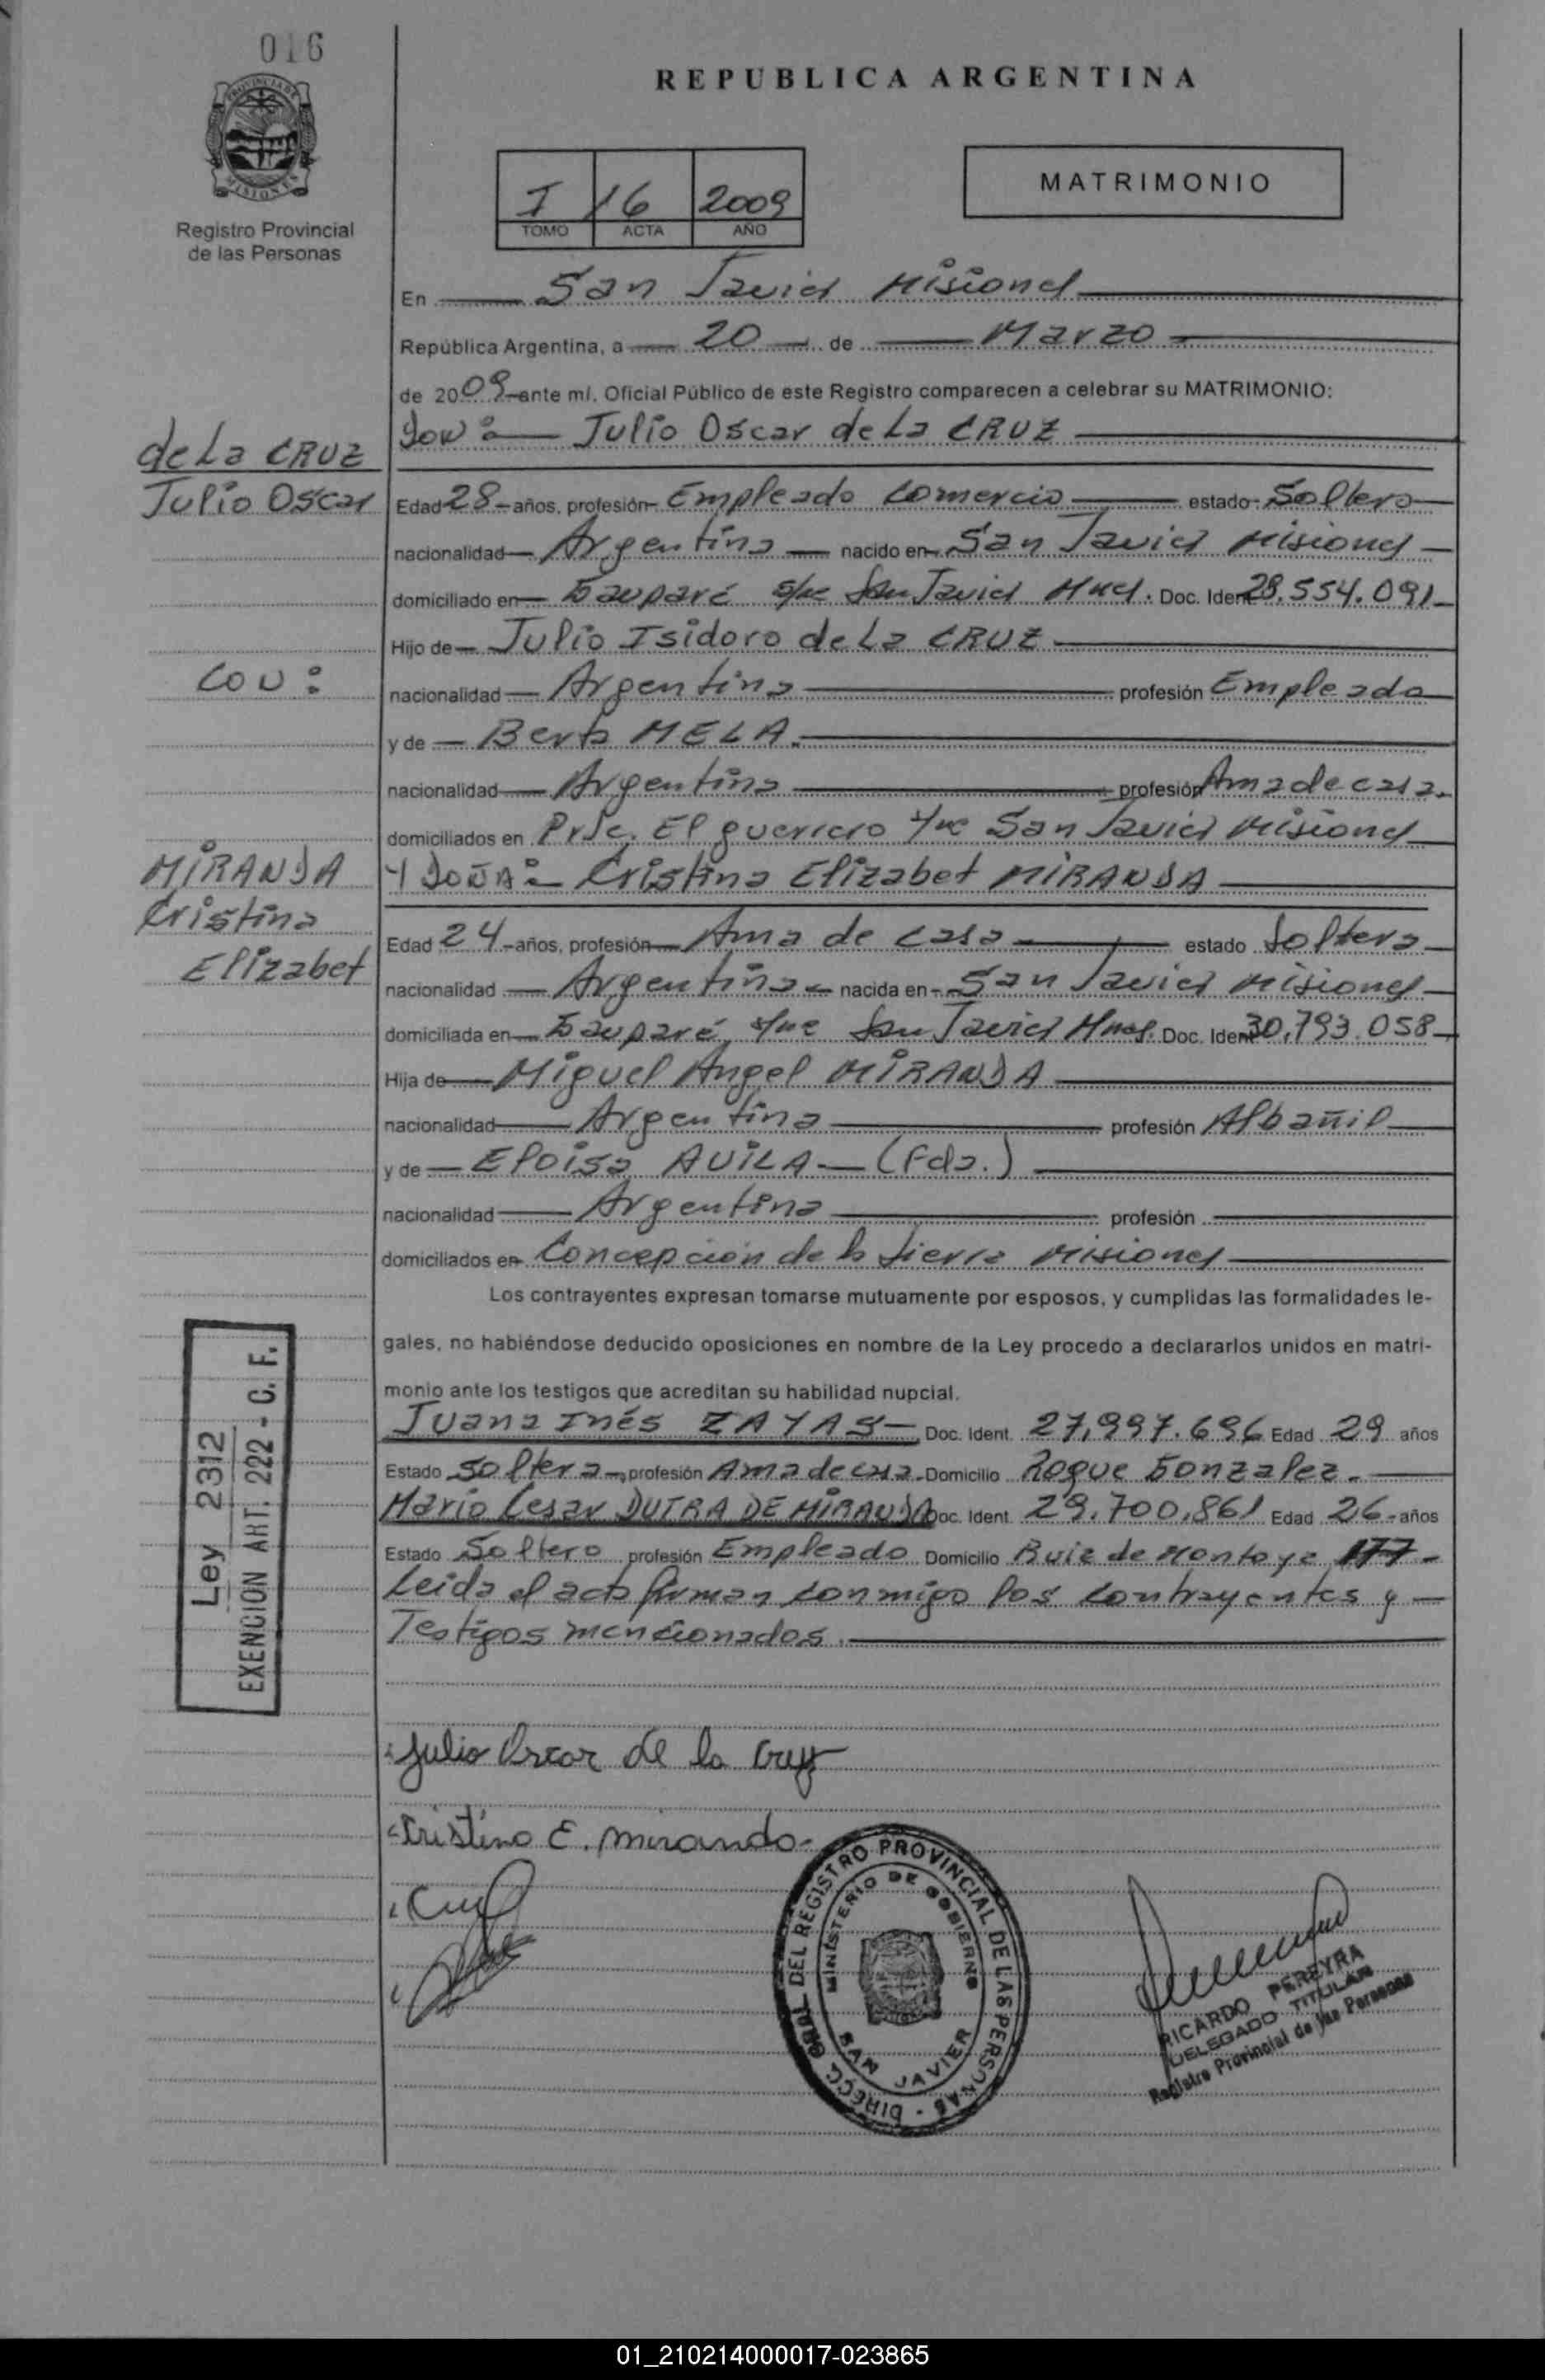 016
REPUBLICA ARGENTINA
PROVINCIA DE MISIONES
Registro Provincial
de las Personas
I 16 2009
TOMO ACTA AÑO
MATRIMONIO
En San Javier Misiones
República Argentina, a 20 de Marzo
de 2009 ante mí, Oficial Público de este Registro comparecen a celebrar su MATRIMONIO:
de La CRUZ
Julio Oscar
CON:
MIRANDA
Cristina
Elizabet
DON: Julio Oscar de La CRUZ
Edad 28 años, profesión Empleado Comercio estado Soltero
nacionalidad Argentina nacido en San Javier Misiones
domiciliado en San Javier Doc. Ident 28.554.091
Hijo de Julio Isidoro de La CRUZ
nacionalidad Argentina profesión Empleado
y de Berta MELA.
nacionalidad Argentina profesión Ama de casa.
domiciliados en El guerrero San Javier Misiones
Y DOÑA: Cristina Elizabet MIRANDA
Edad 24 años, profesión Ama de casa estado Soltera
nacionalidad Argentina nacida en San Javier Misiones
domiciliada en San Javier Doc. Ident 30.793.058
Hija de Miguel Angel MIRANDA
nacionalidad Argentina profesión Albañil
y de Eloisa AVILA (Fda.)
nacionalidad Argentina profesión
domiciliados en Concepción de la Sierra Misiones
Los contrayentes expresan tomarse mutuamente por esposos, y cumplidas las formalidades le-
gales, no habiéndose deducido oposiciones en nombre de la Ley procedo a declararlos unidos en matri-
monio ante los testigos que acreditan su habilidad nupcial.
Juana Inés ZAYAS Doc. Ident. 27.997.696 Edad 29 años
Estado Soltera profesión Ama de casa Domicilio Roque Gonzalez.
Mario Cesar DUTRA DE MIRANDA Doc. Ident. 29.700.861 Edad 26 años
Estado Soltero profesión Empleado Domicilio Ruiz de Montoya
Leida el acta firman conmigo los contrayentes y
Testigos mencionados.
Ley 2312
EXENCION ART. 222 - C. F.
Julio Oscar de la Cruz
Cristina E. Miranda
DIRECC. GRAL. DEL REGISTRO PROVINCIAL DE LAS PERSONAS
MINISTERIO DE GOBIERNO
SAN JAVIER
RICARDO PEREYRA
DELEGADO TITULAR
Registro Provincial de las Personas
01_210214000017-023865